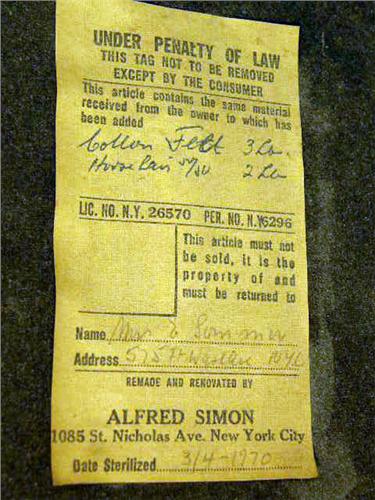 UNDER PENALTY OF LAW
THIS TAG NOT TO BE REMOVED
EXCEPT BY THE CONSUMER
This article contains the same material
received from the owner to which has
been added
Cotton Felt 3 Lb.
Horse Hair 50/50 2 Lb
LIC. NO. N.Y. 26570 PER. NO. N.Y6296
This article must not
be sold, it is the
property of and
must be returned to
Name Mrs Sommer
Address 575 Ft NYC
REMADE AND RENOVATED BY
ALFRED SIMON
1085 St. Nicholas Ave. New York City
Date Sterilized 3/4-1970